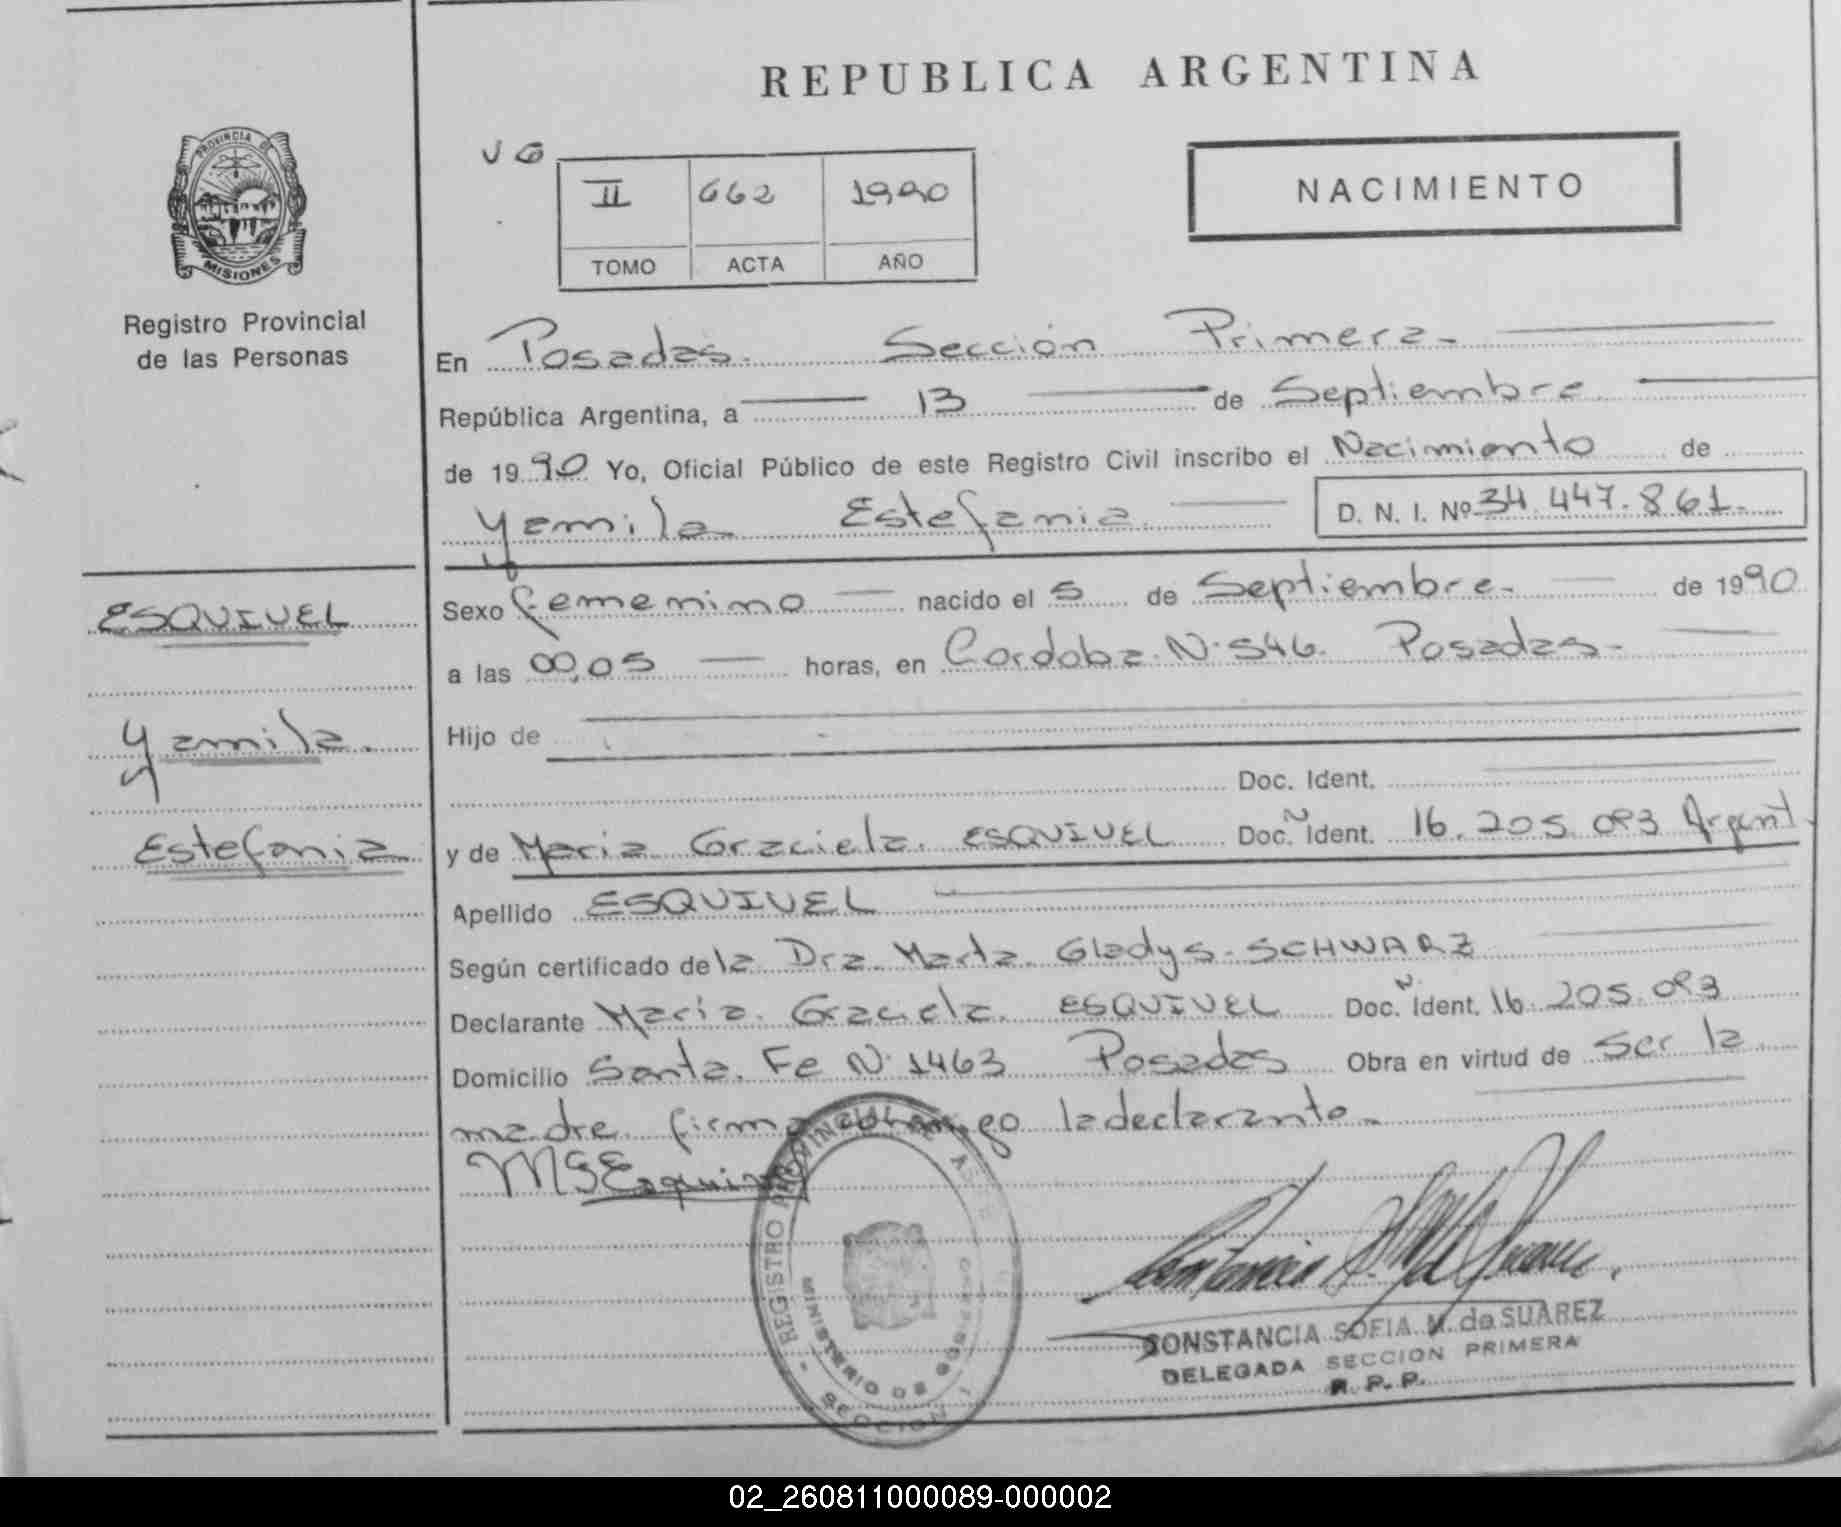 REPUBLICA ARGENTINA
PROVINCIA DE
MISIONES
Registro Provincial
de las Personas
VG
II 662 1990
TOMO ACTA AÑO
NACIMIENTO
En Posadas. Sección Primera-
República Argentina, a 13 de Septiembre
de 1990 Yo, Oficial Público de este Registro Civil inscribo el Nacimiento de
Yamila Estefania D. N. I. Nº 34.447.861.
ESQUIVEL
Yamila.
Estefania
Sexo femenino nacido el 5 de Septiembre- de 1990
a las 00,05 horas, en Cordoba N·546. Posadas-
Hijo de
Doc. Ident.
y de Maria Graciela. ESQUIVEL Doc. Ident. 16.205.093 Argent.
Apellido ESQUIVEL
Según certificado de la Dra. Marta Gladys. SCHWARZ
Declarante Maria. Graciela. ESQUIVEL Doc. Ident. 16.205.093
Domicilio Santa. Fe N·1463 Posadas Obra en virtud de ser la
madre firma conmigo la declarante-
MGEsquivel
REGISTRO PROVINCIAL DE
MINISTERIO DE GOBIERNO
SECCION 1
CONSTANCIA SOFIA M. de SUAREZ
DELEGADA SECCION PRIMERA
R. P. P.
02_260811000089-000002